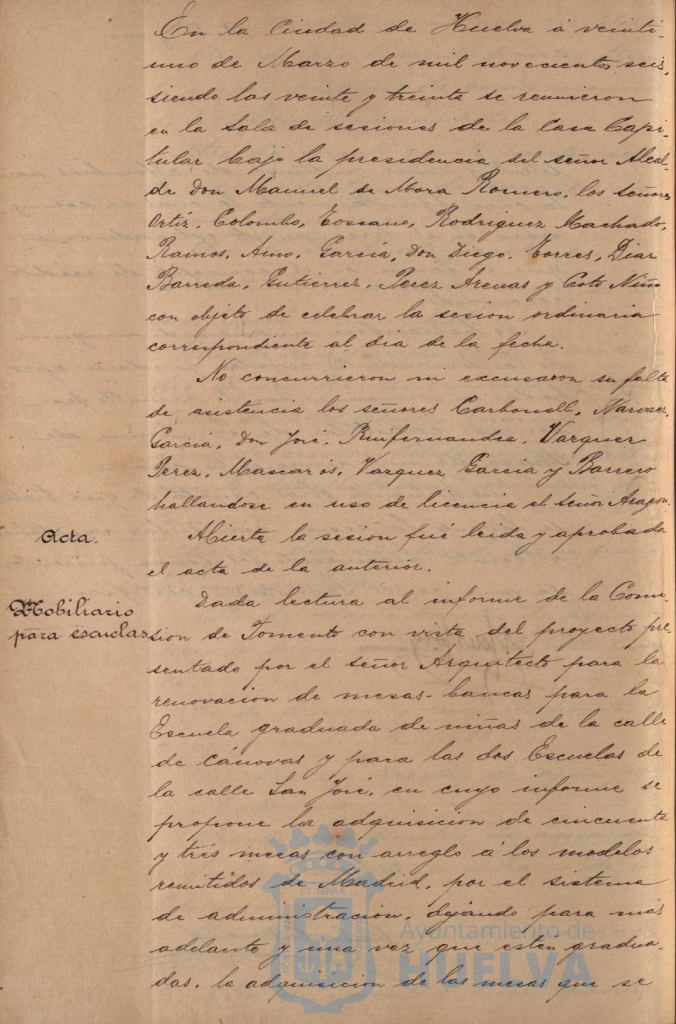 En la Ciudad de Huelva á veinti-
uno de Marzo de mil novecientos seis,
siendo las veinte y treinta se reunieron
en la Sala de sesiones de la Casa Capi-
tular bajo la presidencia del señor Alcal-
de Don Manuel de Mora Romero, los señores
Ortiz, Colombo, Toscano, Rodriguez Machado,
Ramos, Amo, Garcia, Don Diego, Torres, Diaz
Barreda, Gutierrez, Perez Arenas y Coto Niño
con objeto de celebrar la sesion ordinaria
correspondiente al dia de la fecha.
No concurrieron ni excusaron su falta
de asistencia los señores Carbonell, Narvaez,
Garcia, Don José, Ruifernandez, Vazquez
Perez, Mascarós, Vazquez Garcia y Barrero
hallandose en uso de licencia el señor Aragon.
Acta.
Abierta la sesion fué leida y aprobada
el acta de la anterior.
Mobiliario
para escuelas
Dada lectura al informe de la Comi-
sion de Fomento con vista del proyecto pre-
sentado por el señor Arquitecto para la
renovacion de mesas-bancas para la
Escuela graduada de niñas de la calle
de Cánovas y para las dos Escuelas de
la calle San José, en cuyo informe se
propone la adquisicion de cincuenta
y tres mesas con arreglo á los modelos
remitidos de Madrid, por el sistema
de administracion, dejando para más
adelante y una vez que esten gradua-
das, la adquisicion de las mesas que se
Ayuntamiento de
HUELVA